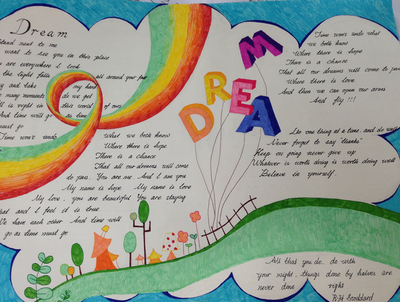 Dream
Stand next to me
want to see you in this place
are everywhere I look
the light falls all around your
and take my hand
many moments do we get
is night in this world of ours
And time will go as time
must go
Time won't
What we both know
Where there is hope
There is a chance
That all our dreams will come
to pass. You are me. And I am you
My name is hope My name is love
My love, you are beautiful You are staying
that and I feel it is true
We have each other And time will
go as time must go
DREAM
Time won't undo what
we both know
Where there is hope
There is a chance
That all our dreams will come to pass
Where there is love
And then we can open our arms
And fly!!!
Do one thing at a time, and do well
Never forget to say "thanks"
Keep on going never give up.
Whatever is worth doing is worth doing well
Believe in yourself.
All that you do, do with
your might, things done by halves are
never done right
R.H. Stoddard